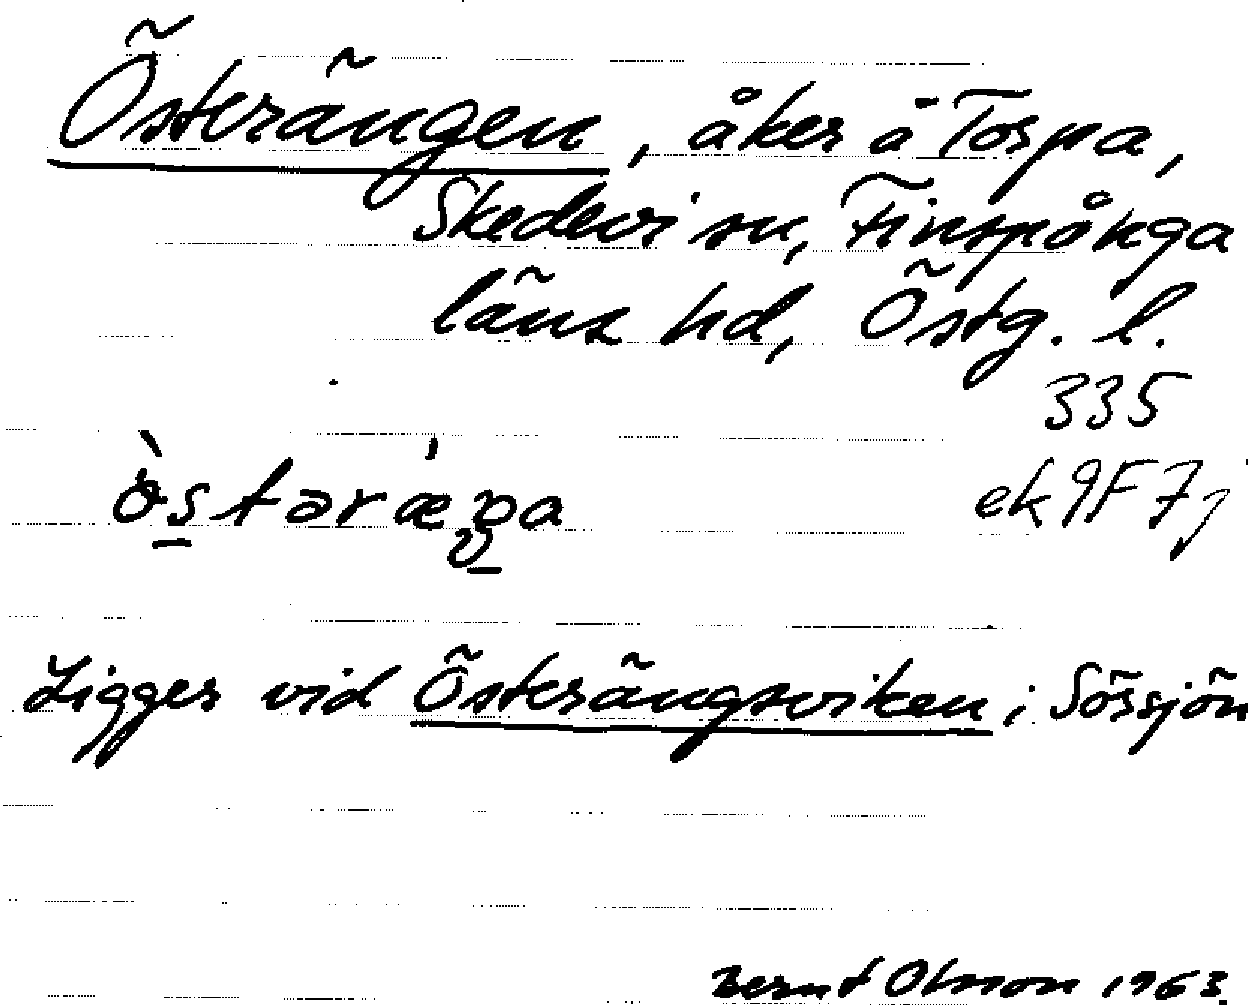 Österängen, åker å Torpa,
Skedevi sn, Finspånga
läns hd, Östg. l.
335
ek 9F7j
Ligger vid Österängsviken i Sörsjön
Bernt Olsson 1963.